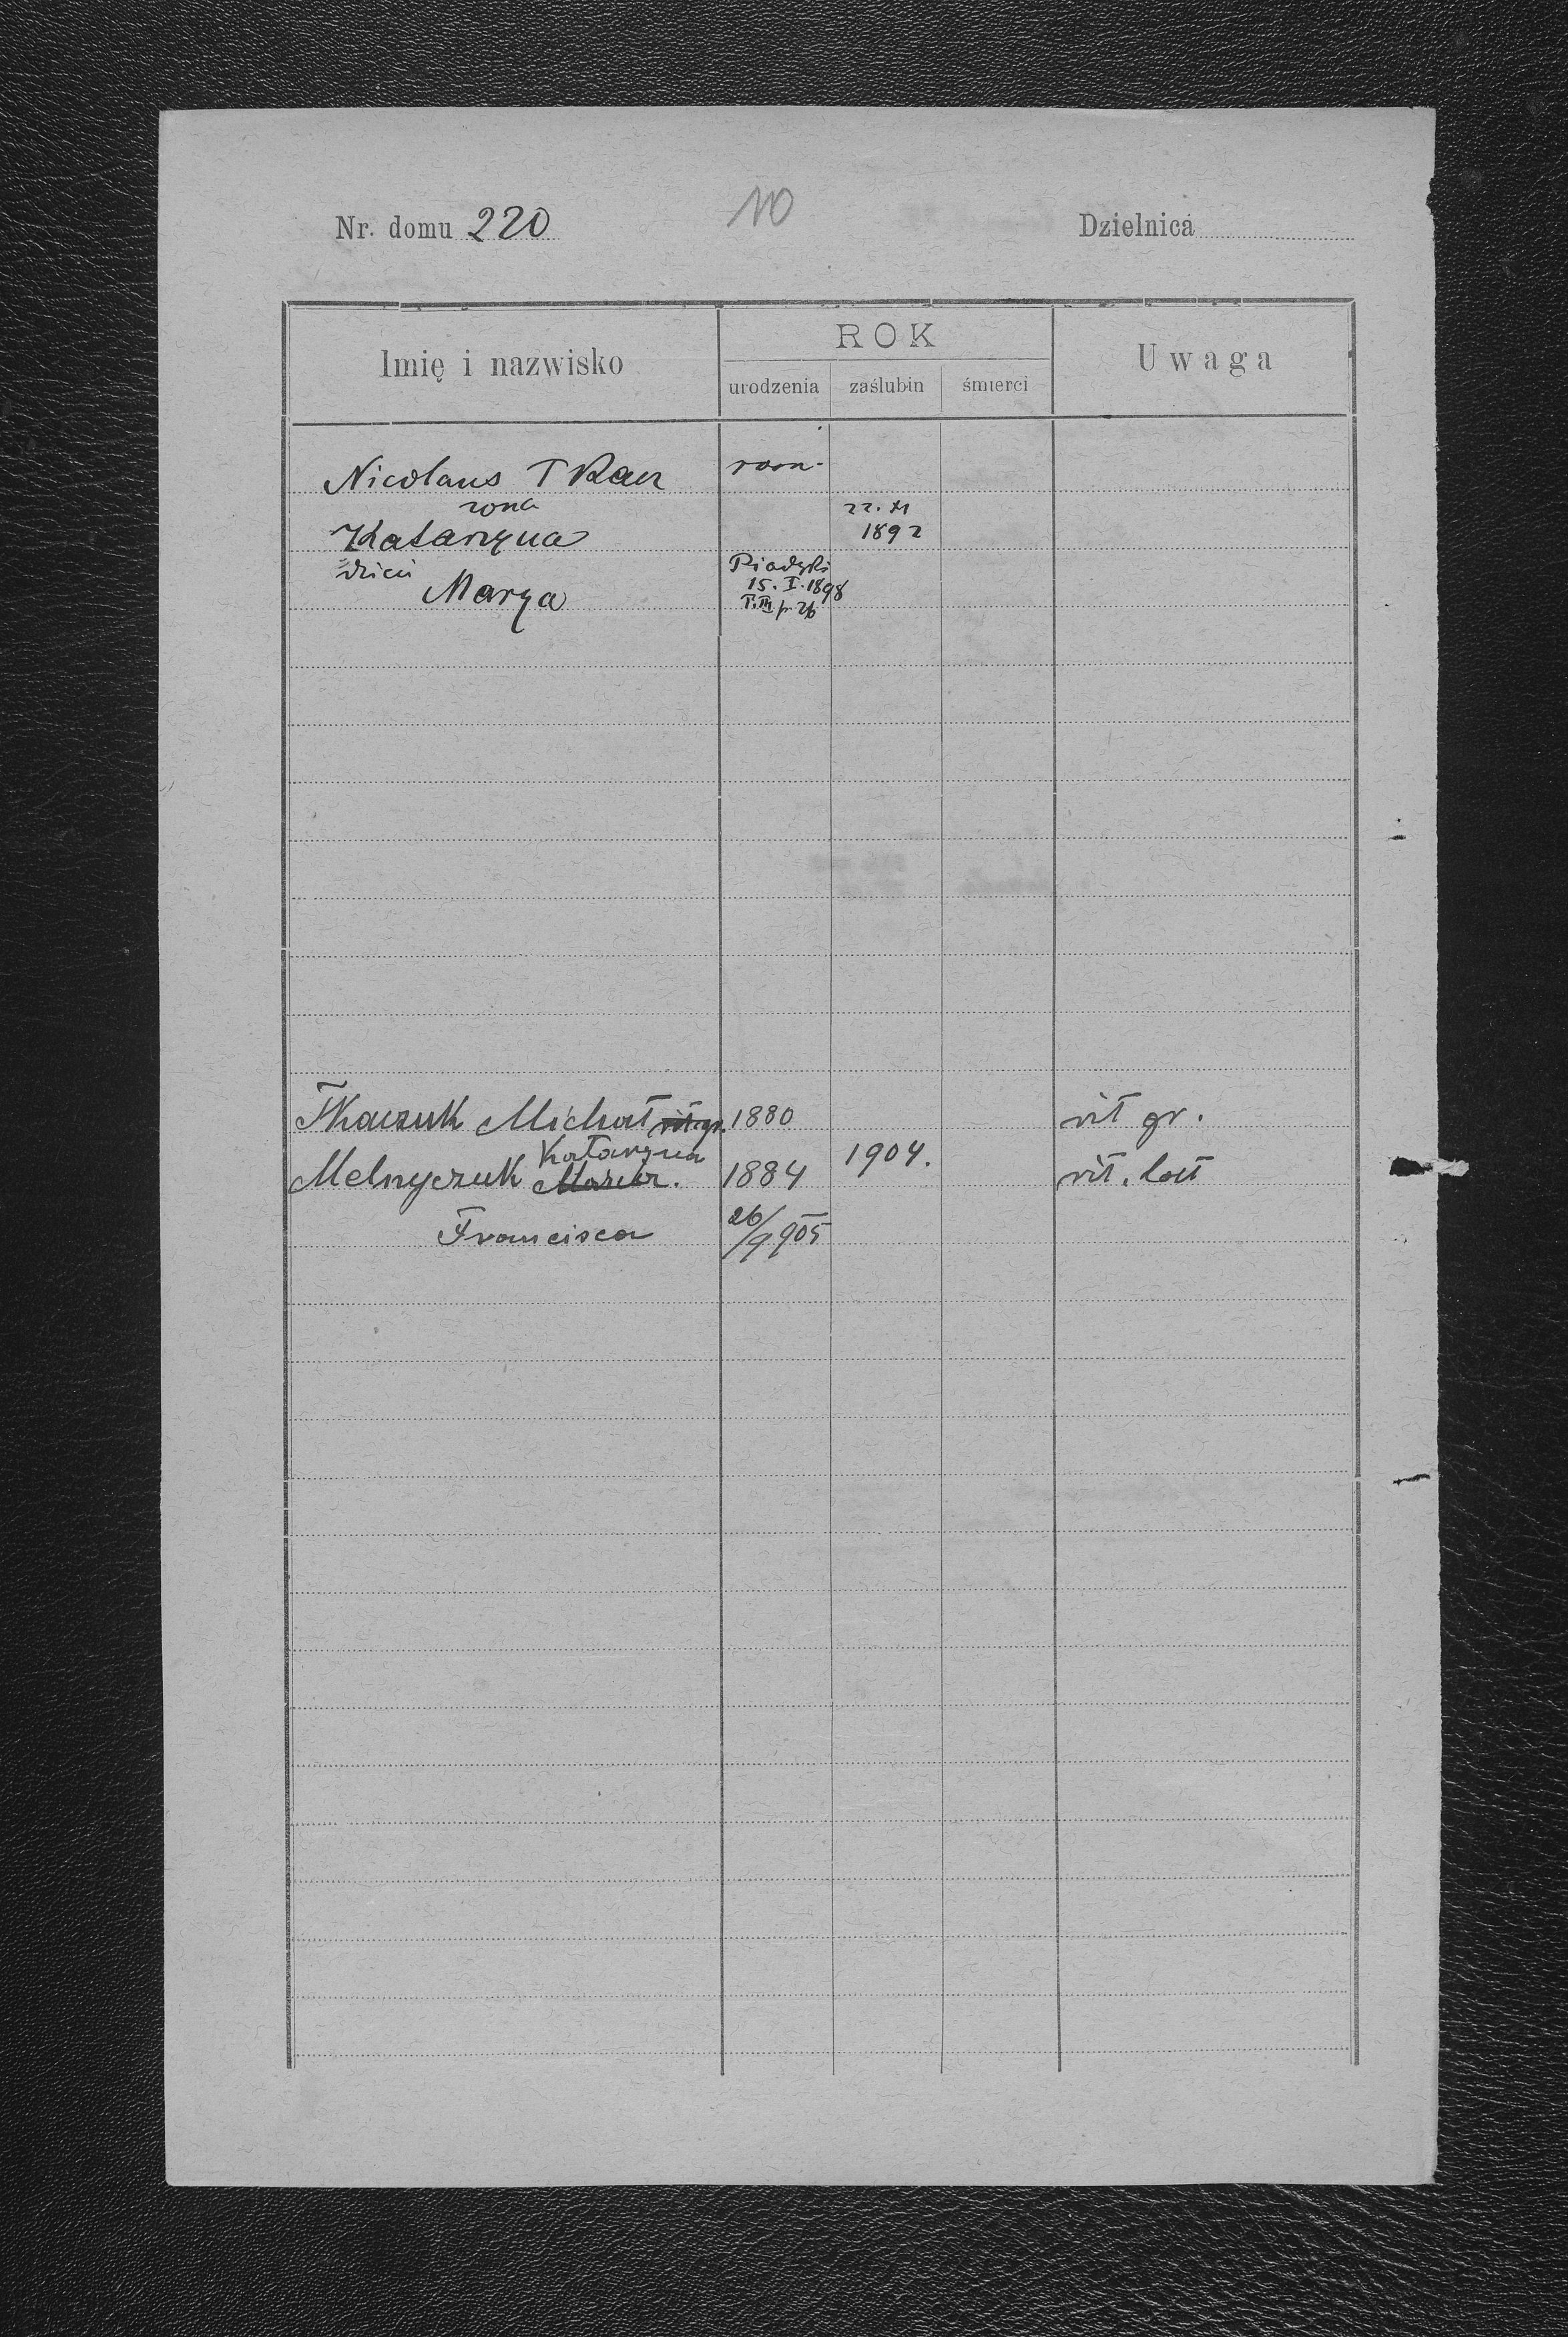 Nr. domu 220
10
Dzielnica
Imię i nazwisko
ROK
urodzenia zaślubin śmierci
Uwaga
Nicolaus Tkacz
żona
Katarzyna 22. XI 1892
dzieci
Marya Piadyki
15. I. 1898
T. III p. 26
Tkaczuk Michał rit. gr. 1880 rit gr.
Katarzyna
Melnyczuk Maria. 1884 1904. rit. lat
Francisca 26/9 905